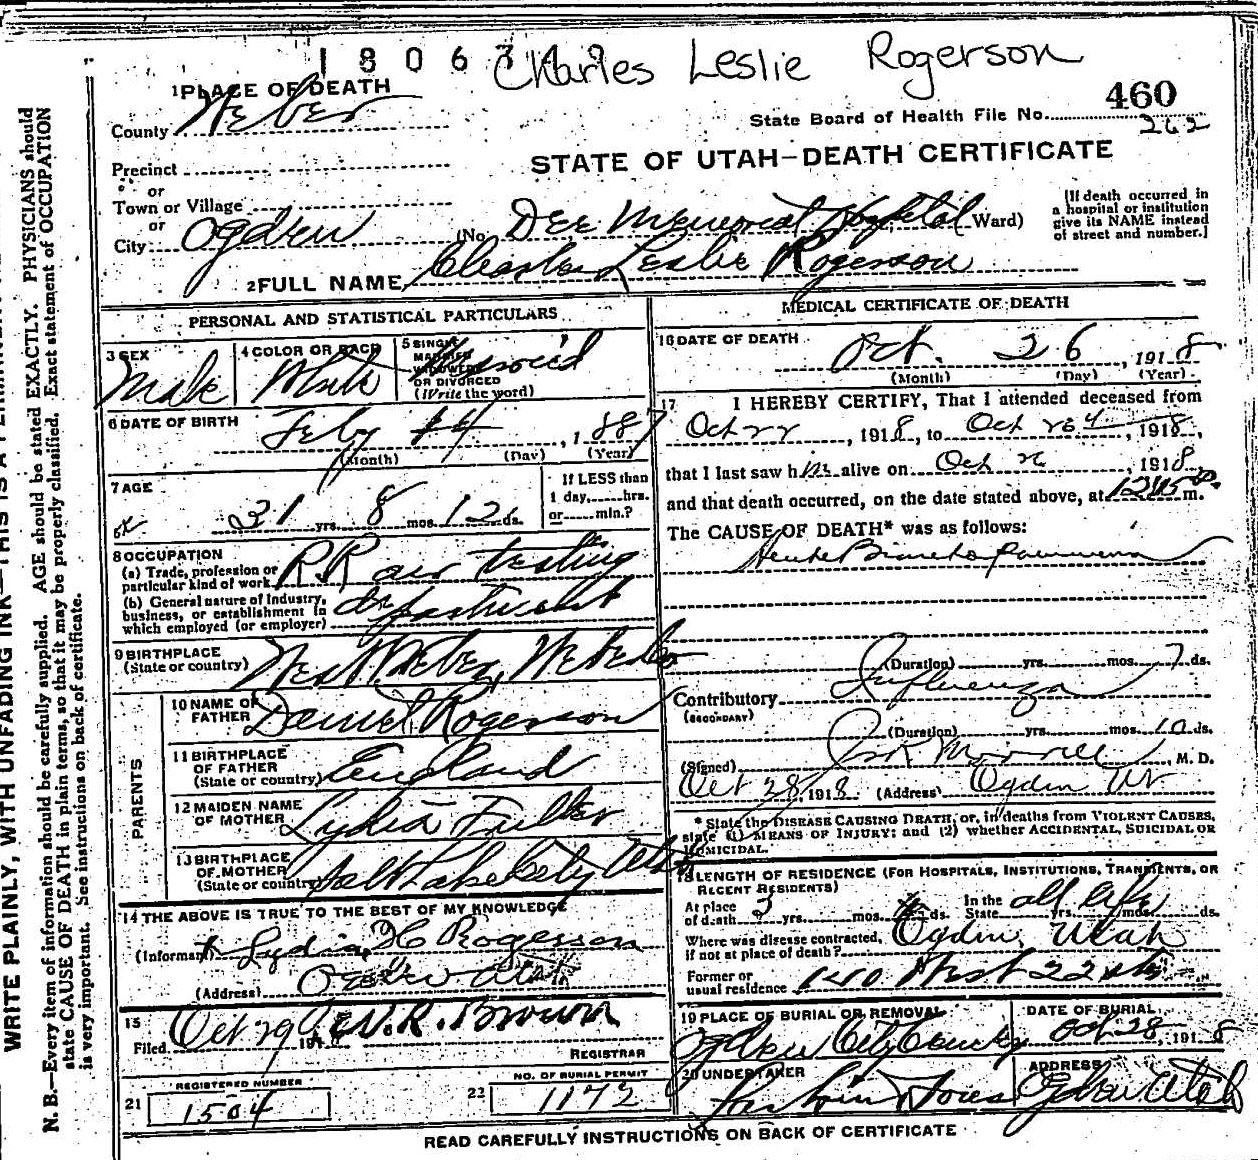 18067
Charles Leslie Rogerson
1 PLACE OF DEATH
County Weber
460
State Board of Health File No.
262
Precinct
or
Town or Village
or
City Ogden
STATE OF UTAH—DEATH CERTIFICATE
(No. Dee Memorial Hospital Ward)
[If death occurred in
a hospital or institution
give its NAME instead
of street and number.]
2 FULL NAME Charles Leslie Rogerson
PERSONAL AND STATISTICAL PARTICULARS
3 SEX
Male
4 COLOR OR RACE
White
5 SINGLE
MARRIED
WIDOWED
OR DIVORCED
(Write the word)
6 DATE OF BIRTH
Feby 4, 1887
(Month) (Day) (Year)
7 AGE
31 yrs. 8 mos. 12 ds.
If LESS than
1 day, hrs.
or min.?
8 OCCUPATION
(a) Trade, profession or
particular kind of work RR air testing
(b) General nature of Industry,
business, or establishment in
which employed (or employer) department
9 BIRTHPLACE
(State or country) West Weber, Weber Co
PARENTS
10 NAME OF
FATHER Daniel Rogerson
11 BIRTHPLACE
OF FATHER
(State or country) England
12 MAIDEN NAME
OF MOTHER Lydia Fuller
13 BIRTHPLACE
OF MOTHER
(State or country) Salt Lake City Utah
14 THE ABOVE IS TRUE TO THE BEST OF MY KNOWLEDGE
(Informant) Lydia H C Rogerson
(Address) Ogden Utah
15
Filed Oct 29, 1918 W. R. Brown
REGISTRAR
21 REGISTERED NUMBER
1504
22 NO. OF BURIAL PERMIT
1172
MEDICAL CERTIFICATE OF DEATH
16 DATE OF DEATH
Oct. 26, 1918
(Month) (Day) (Year)
17 I HEREBY CERTIFY, That I attended deceased from
Oct 22, 1918, to Oct 26, 1918,
that I last saw him alive on Oct 26, 1918
and that death occurred, on the date stated above, at 1245 P. m.
The CAUSE OF DEATH* was as follows:
Acute Broncho Pneumonia
(Duration) yrs. mos. 7 ds.
Contributory Influenza
(SECONDARY)
(Duration) yrs. mos. 10 ds.
(Signed) Morrell, M. D.
Oct 28, 1918 (Address) Ogden Ut
* State the DISEASE CAUSING DEATH, or, in deaths from VIOLENT CAUSES,
state (1) MEANS OF INJURY; and (2) whether ACCIDENTAL, SUICIDAL OR
HOMICIDAL.
18 LENGTH OF RESIDENCE (FOR HOSPITALS, INSTITUTIONS, TRANSIENTS, OR
RECENT RESIDENTS)
At place
of death yrs. mos. ds. In the
State all life yrs. mos. ds.
Where was disease contracted,
if not at place of death? Ogden, Utah
Former or
usual residence West 22nd
19 PLACE OF BURIAL OR REMOVAL
Ogden City Cemetery
DATE OF BURIAL
Oct 28, 1918
20 UNDERTAKER
Larkin & Sons
ADDRESS
Ogden Utah
READ CAREFULLY INSTRUCTIONS ON BACK OF CERTIFICATE
WRITE PLAINLY, WITH UNFADING INK—THIS IS A
N. B.—Every item of information should be carefully supplied. AGE should be stated EXACTLY. PHYSICIANS should
state CAUSE OF DEATH in plain terms, so that it may be properly classified. Exact statement of OCCUPATION
is very important. See instructions on back of certificate.